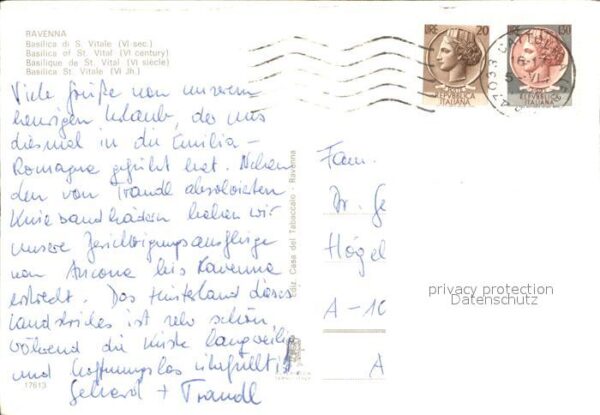 RAVENNA
Basilica di S. Vitale (VI sec.)
Basilica of St. Vital (VI century)
Basilique de St. Vital (VI siècle)
Basilica St. Vitale (VI Jh.)
Viele Grüße von unserem
heurigen Urlaub, der uns
diesmal in die Emilia-
Romagna geführt hat. Neben
den von Trandl absolvierten
bädern haben wir
unsere Besichtigungsausflüge
von Ancona bis Ravenna
erstreckt. Das Hinterland dieses
Landstriches ist sehr schön,
während die Küste langweilig
und hoffnungslos überfüllt ist
Gehard + Trandl
17613
Ediz. Casa del Tabaccaio - Ravenna
LIRE 20
REPUBBLICA
ITALIANA
LIRE 130
REPUBBLICA
ITALIANA
47033 CATTOLICA
Fam.
Dr. Ge
Högel
A-10
A
privacy protection
Datenschutz